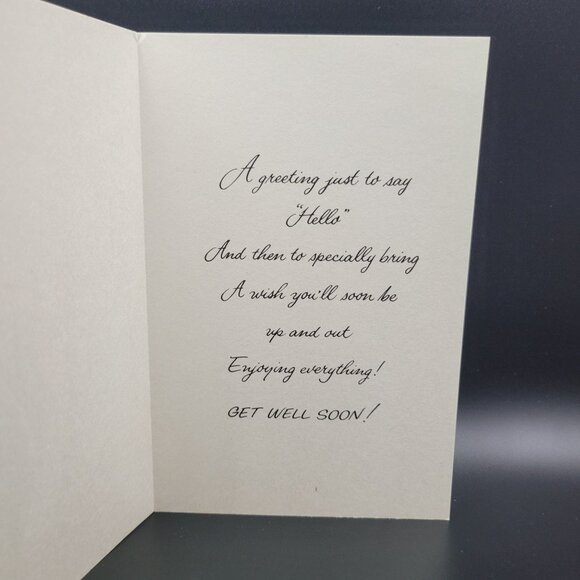 A greeting just to say
"Hello"
And then to specially bring
A wish you'll soon be
up and out
Enjoying everything!
GET WELL SOON!